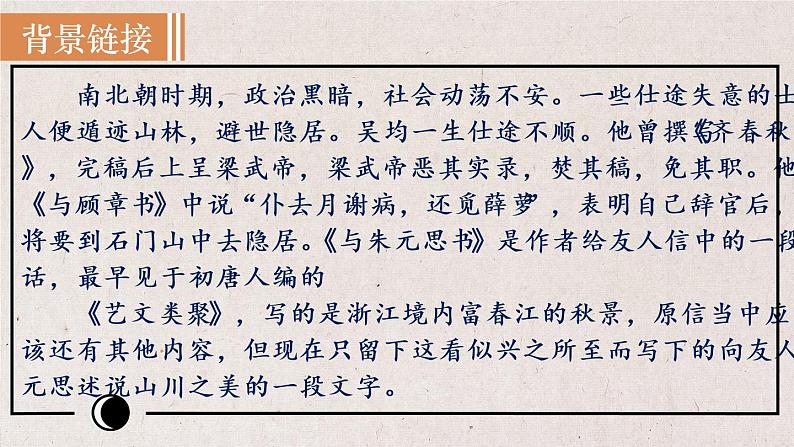 背景链接
南北朝时期，政治黑暗，社会动荡不安。一些仕途失意的士
人便遁迹山林，避世隐居。吴均一生仕途不顺。他曾撰写《齐春秋
》，完稿后上呈梁武帝，梁武帝恶其实录，焚其稿，免其职。他
《与顾章书》中说“仆去月谢病，还觅薛萝”，表明自己辞官后，
将要到石门山中去隐居。《与朱元思书》是作者给友人信中的一段
话，最早见于初唐人编的
《艺文类聚》，写的是浙江境内富春江的秋景，原信当中应
该还有其他内容，但现在只留下这看似兴之所至而写下的向友人
元思述说山川之美的一段文字。